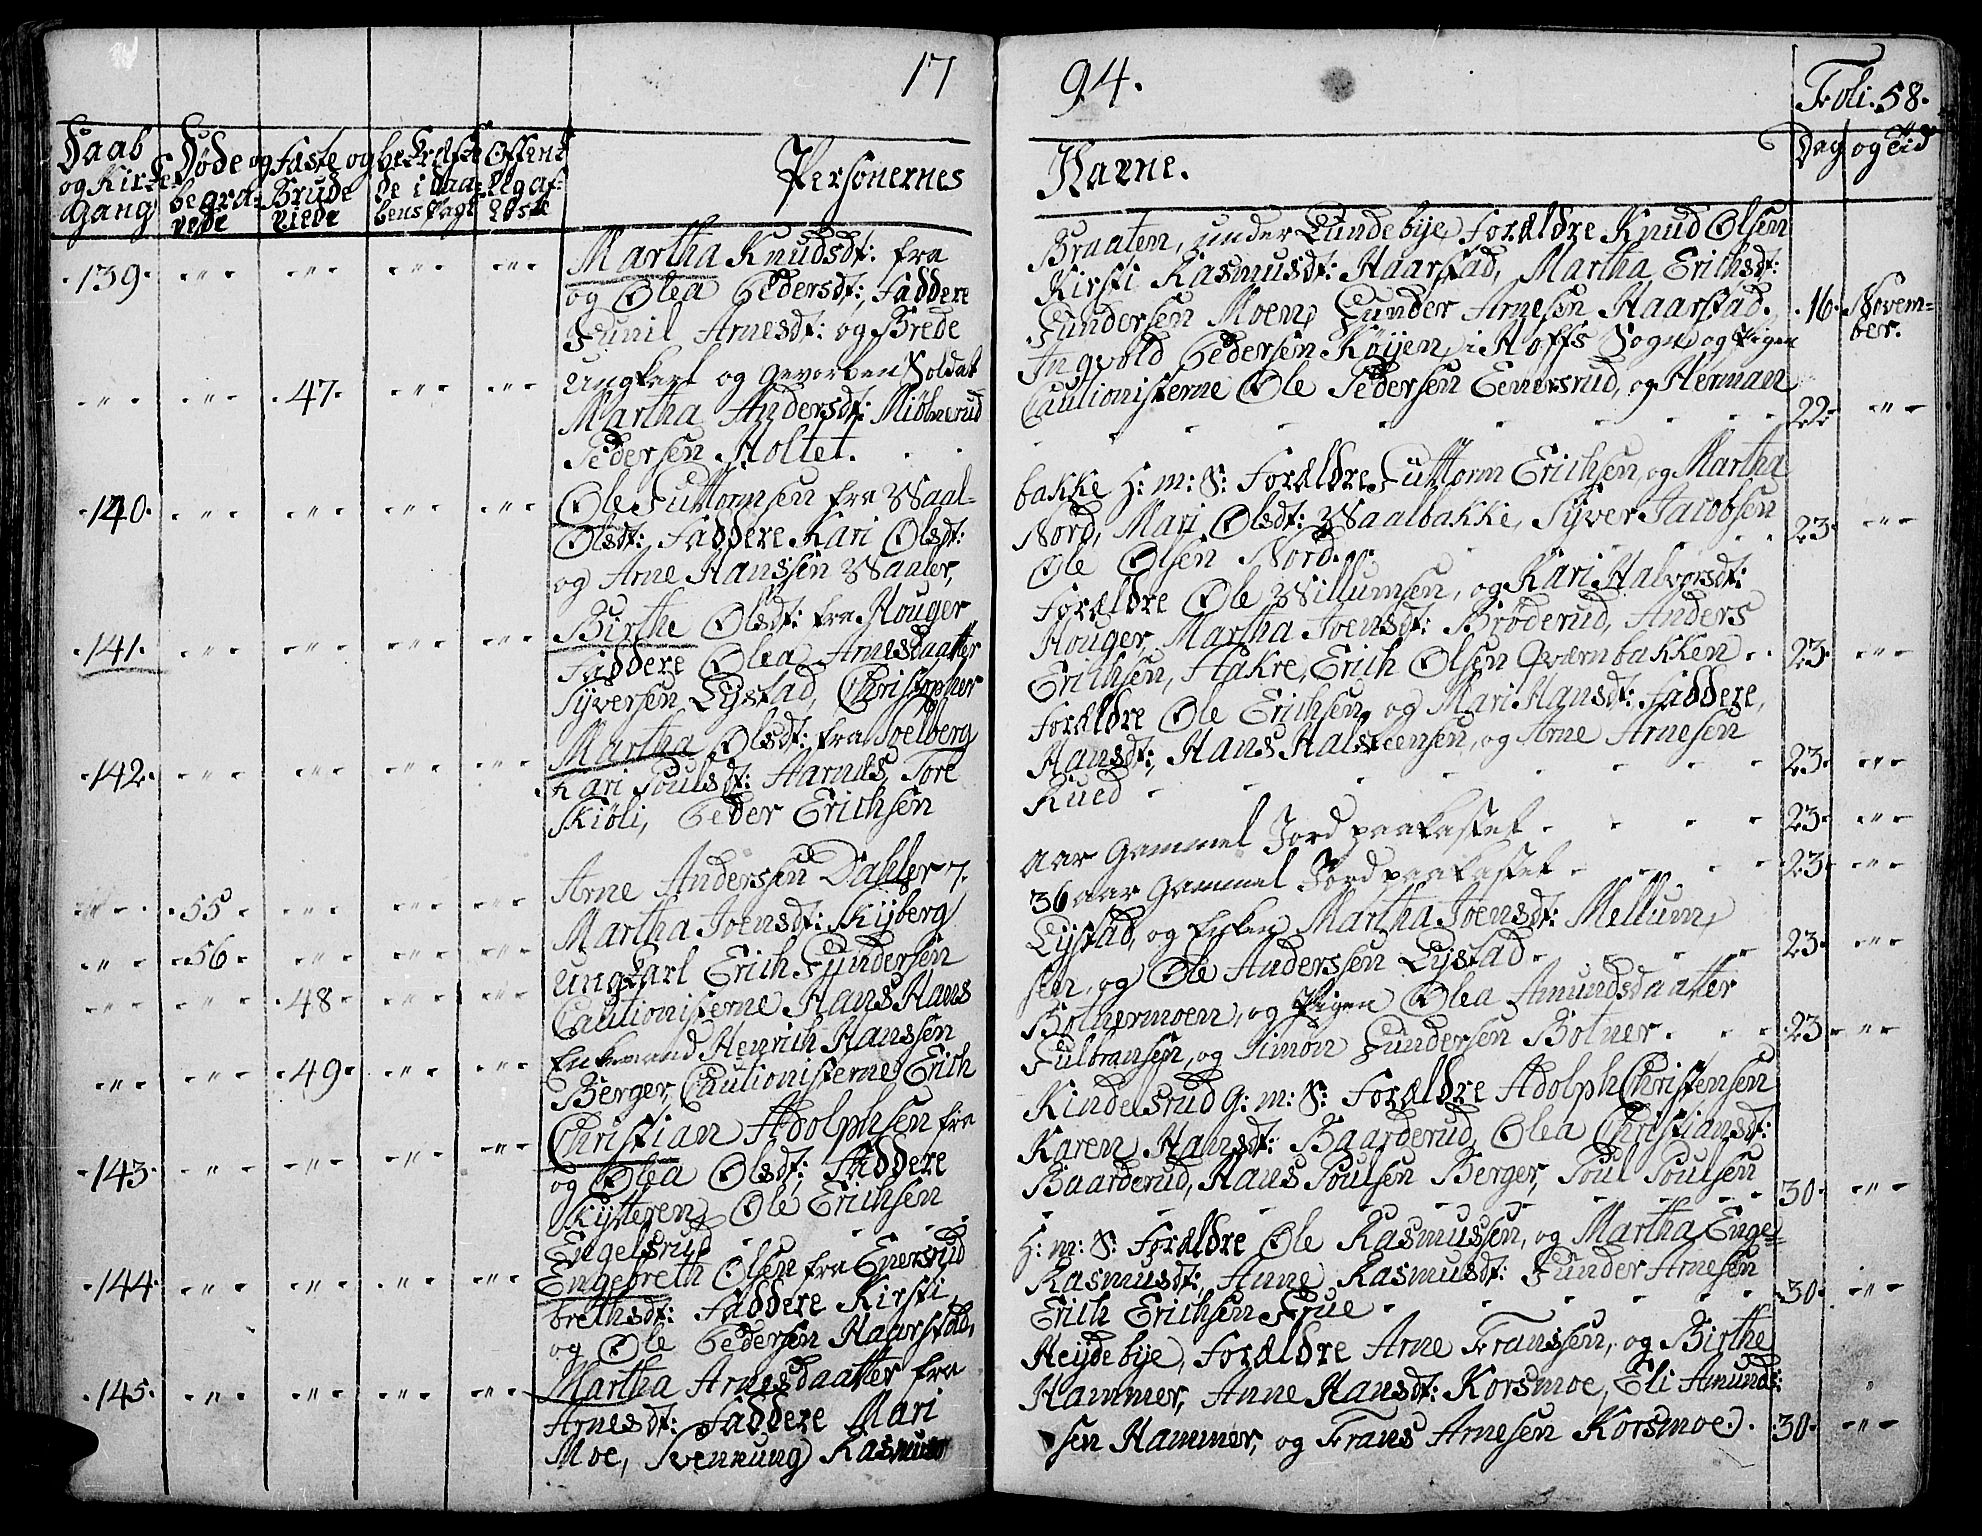 1794. Foli. 58.
Daab og Kirke Gang
Døde og begravede
Fæste og Brude viede
bekræftede i Daabens Pagt
Offentlig afløste
Personernes Navne.
Dag og Tid
139. Martha Knudsdt: fra Braaten, under Lundebye, Forældre Knud Olsen
og Olea Pedersdt: Faddere Kirsti Rasmusdt: Haarstad, Martha Erichsdt:
Gunil Arnesdt: og Brede Gundersen Moen, Gunder Arnesen Haarstad. 16. November.
47. Ungkarl og Gevorben Soldat Ingvold Pedersen Køijen, i Hoffs Sogn og Pigen
Martha Andersdt: Miølnerud Cautionisterne Ole Pedersen Eenersrud, og Herman
Pedersen Holtet. 22
140. Ole Guttormsen fra Waalbakke H: m: S: Forældre, Guttorm Erichsen, og Martha
Olsdt: Faddere Kari Olsdt: Nord, Mari Olsdt: Waalbakke, Syver Jacobsen
og Arne Hanssen Waaler, Ole Olsen Nord. 23
141. Birthe Olsdt: fra Houger Forældre Ole Willumsen, og Kari Halvorsdt:
Faddere Olea Arnesdaatter Houger, Martha Joensdt: Brøderud, Anders
Syversen Lystad, Christopher Erichsen, Hakre, Erich Olsen Qværnbakken 23
142. Martha Olsdt: fra Soelberg Forældre Ole Erichsen, og Mari Hansdt: Faddere,
Kari Poulsdt: Aarnæs, Tore Hansdt:, Hans Halsteensen, og Arne Arnesen
Skiøli, Peder Erichsen Rued 23
55 Arne Andersen Dahler 7. aar Gammel Jord paakastet 23
56 Martha Joensdt: Kyberg 36 aar Gammel Jord paakastet 23
48 Ungkarl Erich Gundersen Lystad, og Enken Martha Joensdt: Mellum,
Cautionisterne Hans Hanssen, og Ole Anderssen Lystad 23
49 Enkemand Henrich Hanssen Botnermoen, og Pigen Olea Amundsdaatter
Berger, Cautionisterne, Erich Gulbransen, og Simon Gundersen Botner 23
143. Christian Adolphsen fra Kindelsrud G: m: S: Forældre Adolph Christensen
og Olea Olsdt: Faddere Karen Hansdt: Baarderud, Olea Christiansdt:
Kytteren, Ole Erichsen Baarderud, Hans Poulsen Berger, Poul Poulsen
Engelsrud 30
144. Engebreth Olsen fra Enersrud H: m: S: Forældre Ole Rasmussen, og Martha Engebrethsdt:
Faddere Kirsti Rasmusdt:, Anne Rasmusdt: Gunder Arnesen
og Ole Pedersen Haarstad, Erich Erichsen Frue 30
145. Martha Arnesdaatter fra Heydebye, Forældre Arne Franssen, og Birthe
Arnesdt: Faddere Mari Hammer, Anne Hansdt: Korsmoe, Eli Amunds:
Moe, Svennung Rasmussen Hammer, og Frans Arnesen Korsmoe. 30